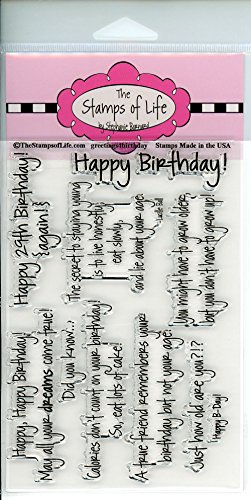 The
Stamps of Life
by Stephanie Barnard
©TheStampsofLife.com greetings4birthday Stamps Made in the USA
Happy Birthday!
Happy 29th Birthday!
{again!}
The secret to staying young
is to live honestly,
eat slowly,
and lie about your age.
Lucille Ball
you might have to grow older,
but you don't have to grow up!
Happy, Happy Birthday!
May all your dreams come true!
Did you know...
Calories don't count on your birthday!
So, eat lots of cake!
A true friend remembers your
birthday but not your age.
Just how old are you?!?
Happy B-Day!